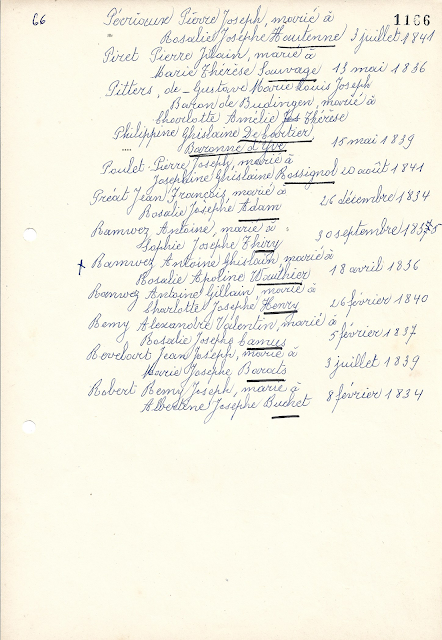 66
1166
Périoux Pierre Joseph, marié à
Rosalie Josèphe Hautenne 3 juillet 1841
Piret Pierre Jilain, marié à
Marie Thérèse Sauvage 13 mai 1836
Pitters, de - Gustave Marie Louis Joseph
Baron de Budingen, marié à
Charlotte Amélie Jos Thérèse
Philippine Ghislaine De Cartier
Baronne d'Yve 15 mai 1839
Poulet Pierre Joseph, marié à
Josephine Ghislaine Rossignol 20 août 1841
Préat Jean François marié à
Rosalie Josèphe Adam 26 décembre 1834
Ramwez Antoine, marié à
Sophie Josephe Thiry 30 septembre 1835
x Ramwez Antoine Ghislain marié à
Rosalie Apoline Wauthier 18 avril 1836
Ramwez Antoine Gillain marié à
Charlotte Josephe Henry 26 février 1840
Remy Alexandre Valentin, marié à
Rosalie Josephe Camus 5 février 1837
Joseph, marié à
Marie Josephe Barats 3 juillet 1839
Robert Remy Joseph, marié à
Albertine Josephe Buchet 8 février 1834